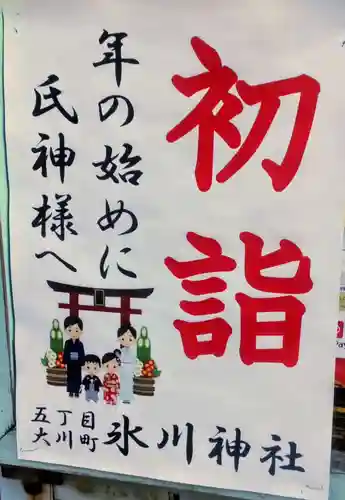 初詣
年の始めに
氏神様へ
五丁目
大川町
氷川神社
Pay